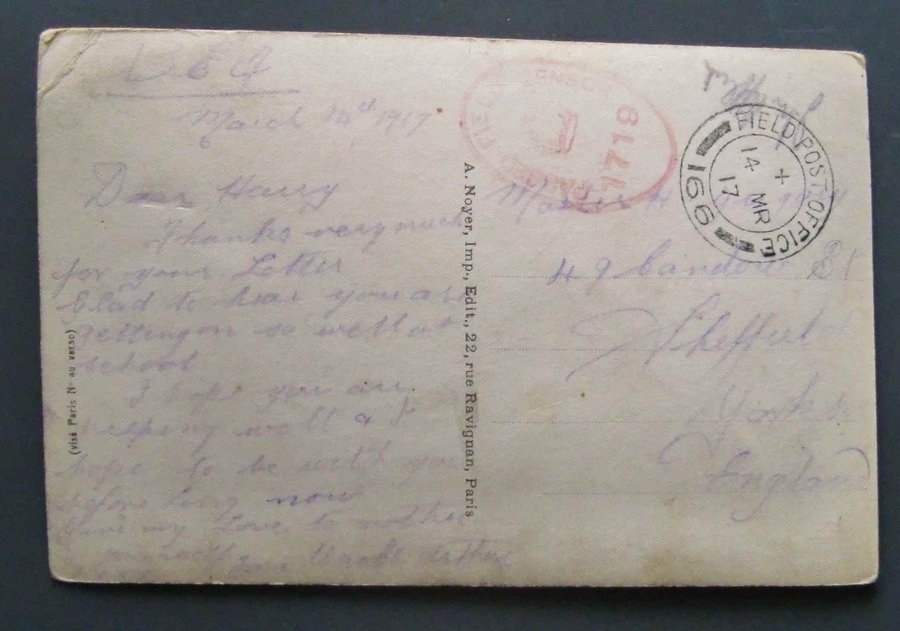 B E F
March 14th 1917
Dear Harry
Thanks very much
for your Letter
Glad to hear you are
getting on so well at
school
I hope you are
keeping well & I
hope to be with you
before long now
Give my love to mother
Uncle Arthur
(visé Paris No au verso)
A. Noyer, Imp., Edit., 22, rue Ravignan, Paris
1718
FIELD POST OFFICE
166
14 MR
17
Master H
49 St
Sheffield
Yorks
England